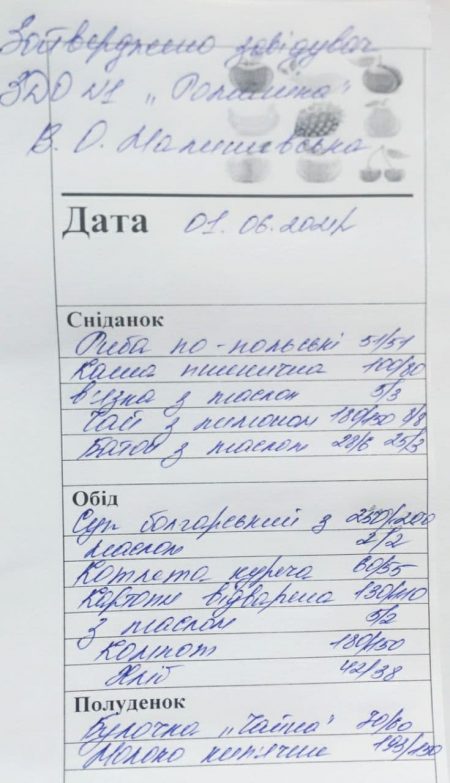 Затверджено завідувач
ЗДО №1 „Ромашка"
В. О. Малишевська
Дата 01.06.2021р
Сніданок
Риба по-польські 51/51
Каша пшенична 100/80
в'язка з маслом 5/3
Чай з лимоном 180/150 8/8
Батон з маслом 28/6 25/3
Обід
Суп болгарський з 250/200
маслом 2/2
Котлета куряча 60/55
Картопл відварена 130/110
з маслом 5/2
Компот 180/150
Хліб 42/38
Полуденок
Булочка „Чайна" 70/60
Молоко кип'ячене